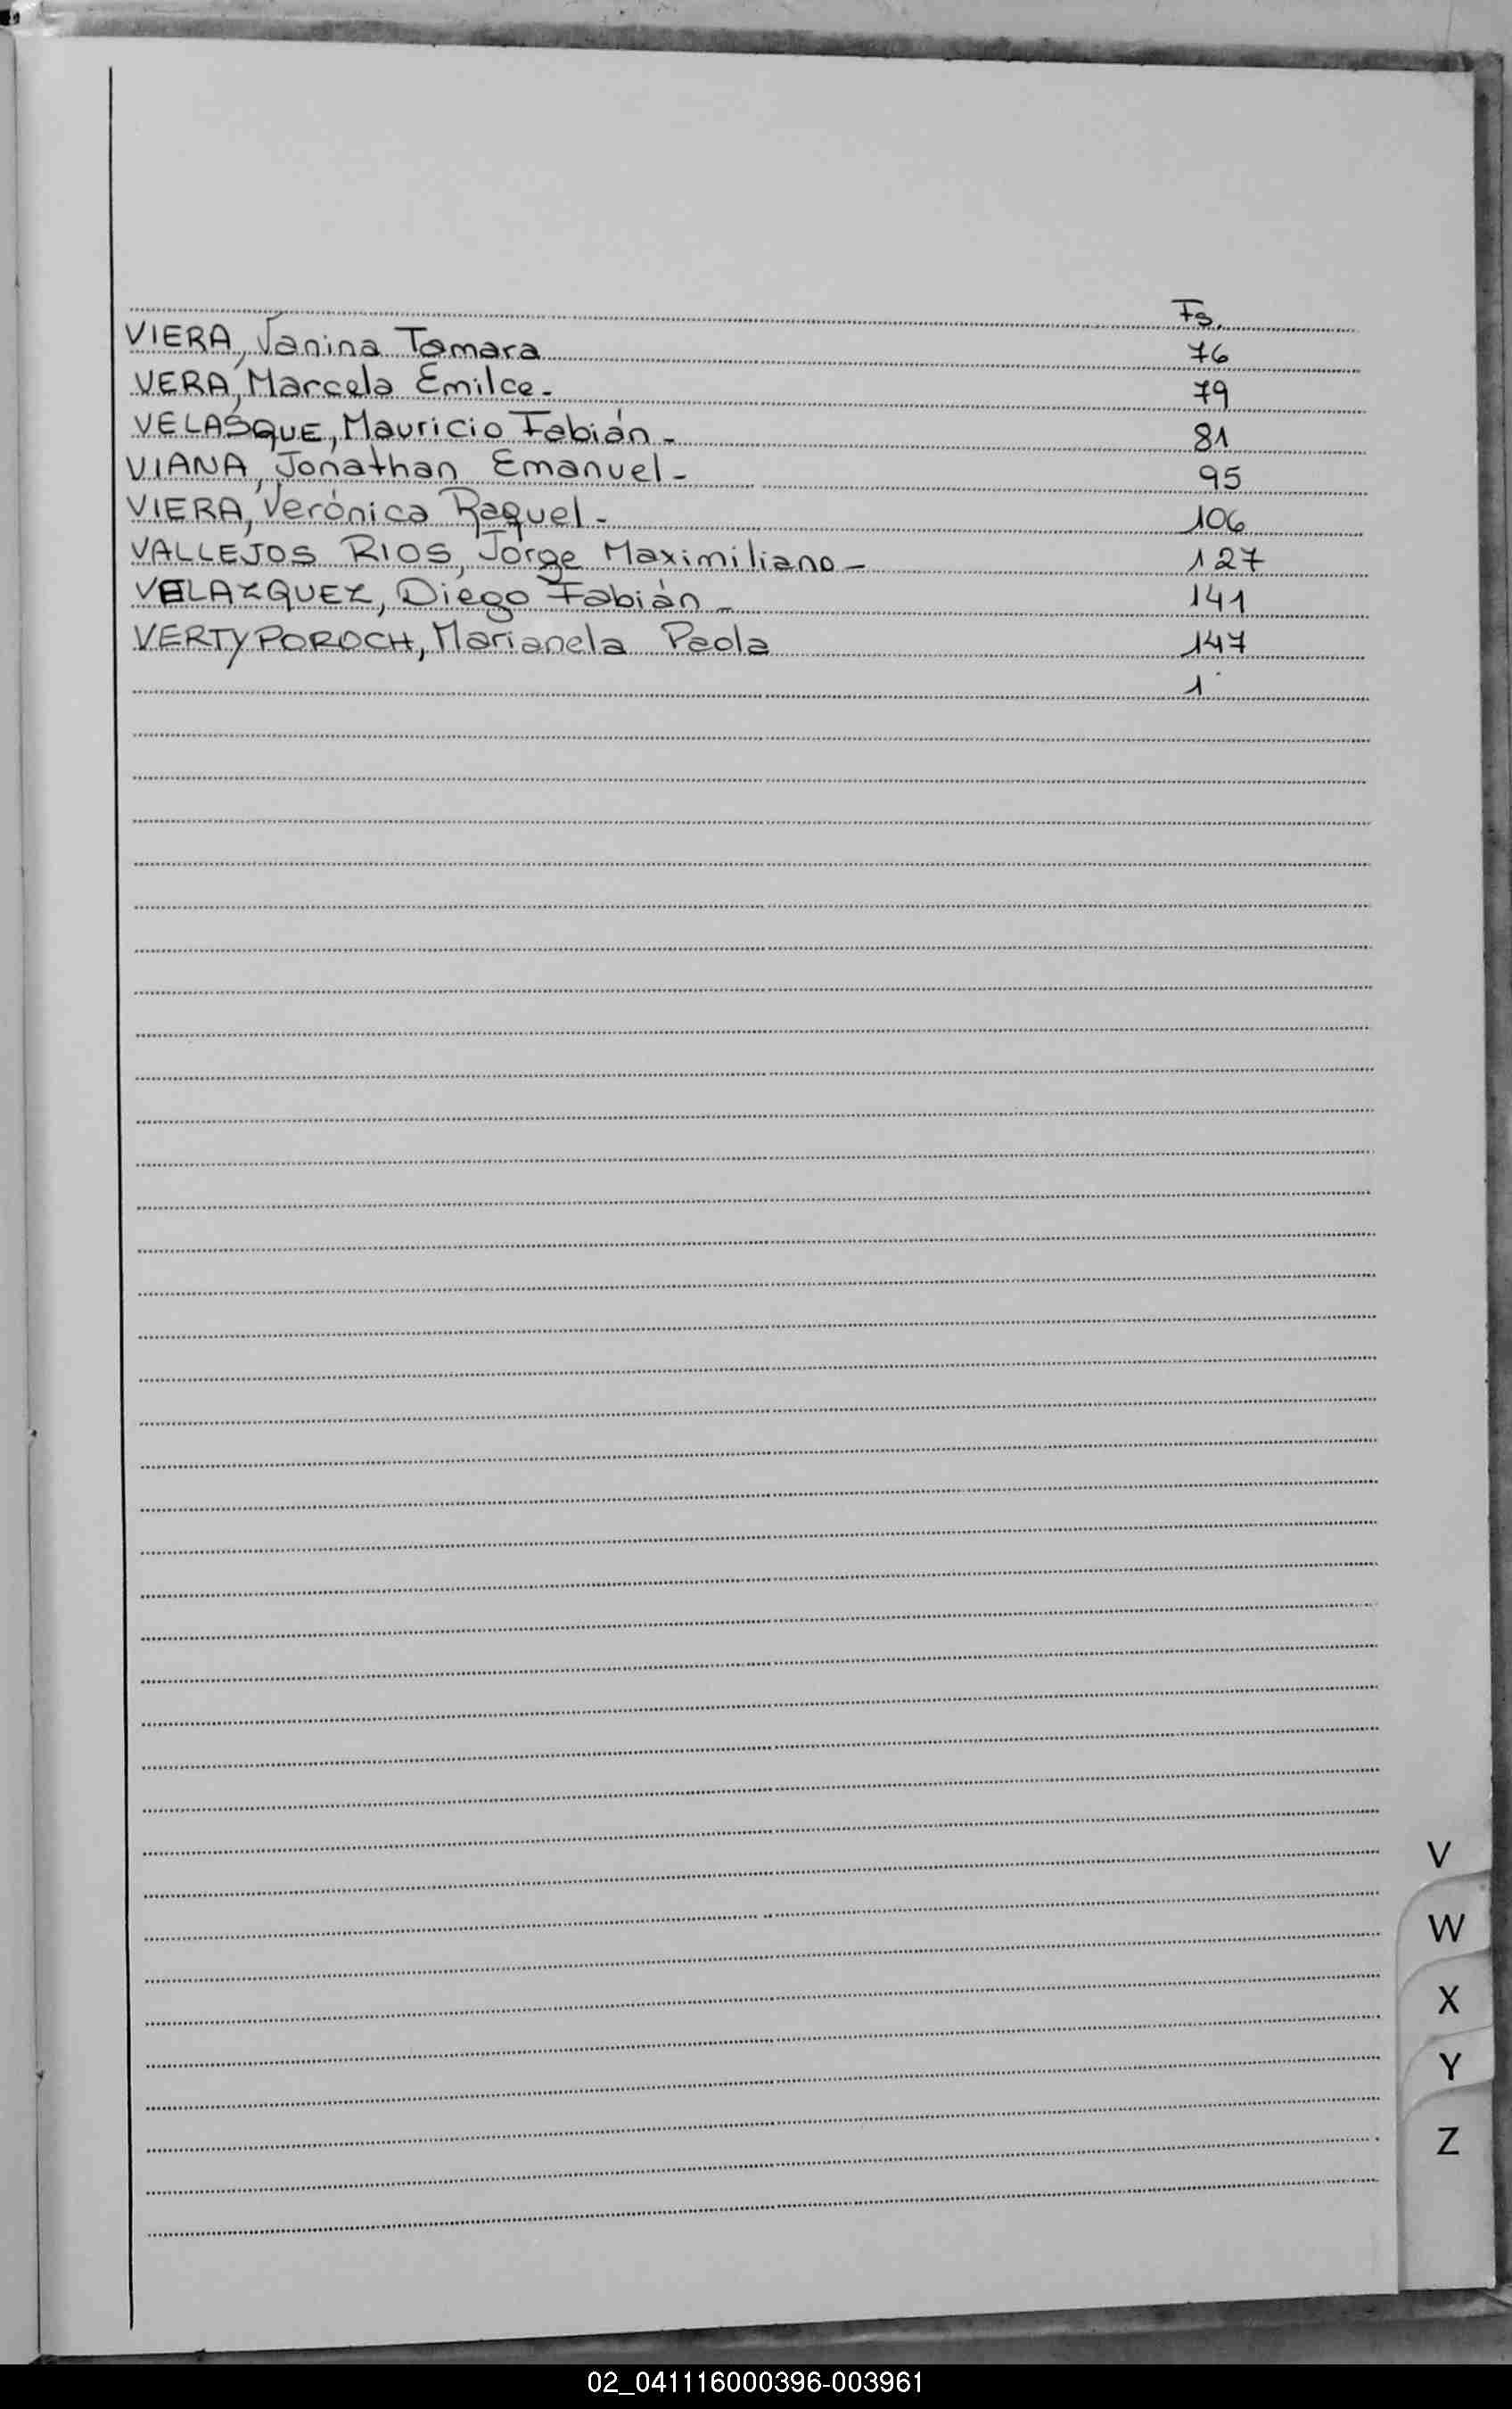 Fs.
VIERA, Vanina Tamara 76
VERA, Marcela Emilce - 79
VELASQUE, Mauricio Fabián - 81
VIANA, Jonathan Emanuel - 95
VIERA, Verónica Raquel - 106
VALLEJOS RIOS, Jorge Maximiliano - 127
VELAZQUEZ, Diego Fabián - 141
VERTYPOROCH, Marianela Paola 147
1
V
W
X
Y
Z
02_041116000396-003961